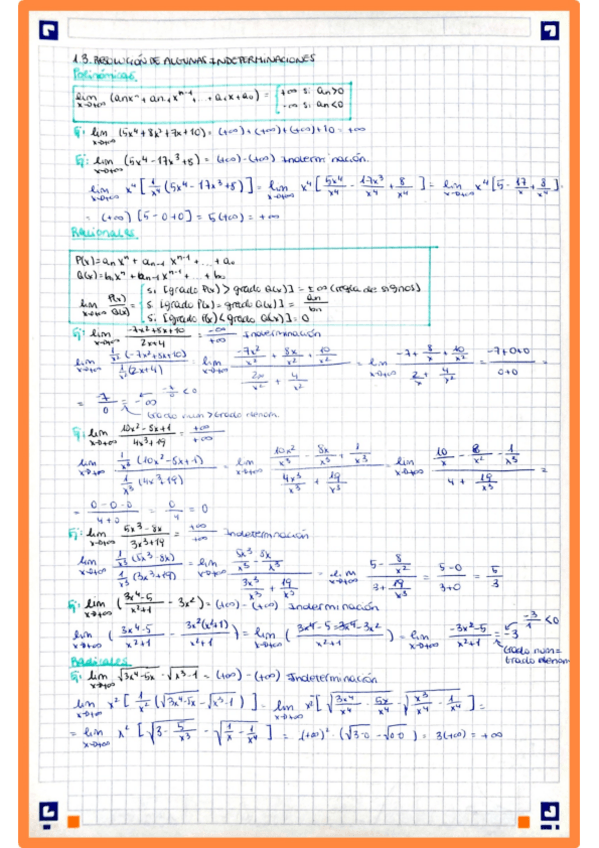 1.3. RESOLUCIÓN DE ALGUNAS INDETERMINACIONES
Polinómicas
lim x→+∞ (anxⁿ + an-1 xⁿ⁻¹ + ... + a1x + a0) = { +∞ si an>0
-∞ si an<0
Ej: lim x→+∞ (5x⁴ + 8x² + 7x + 10) = (+∞) + (+∞) + (+∞) + 10 = +∞
Ej: lim x→+∞ (5x⁴ - 17x³ + 8) = (+∞) - (+∞) Indeterminación.
lim x→+∞ x⁴ [1/x⁴ (5x⁴ - 17x³ + 8)] = lim x→+∞ x⁴ [5x⁴/x⁴ - 17x³/x⁴ + 8/x⁴] = lim x→+∞ x⁴ [5 - 17/x + 8/x⁴] =
= (+∞) [5 - 0 + 0] = 5(+∞) = +∞
Racionales
P(x) = an xⁿ + an-1 xⁿ⁻¹ + ... + a0
Q(x) = bn xⁿ + bn-1 xⁿ⁻¹ + ... + b0
lim x→+∞ P(x)/Q(x) = { Si [grado P(x) > grado Q(x)] = ±∞ (regla de signos)
Si [grado P(x) = grado Q(x)] = an/bn
Si [grado P(x) < grado Q(x)] = 0
Ej: lim x→+∞ (-7x² + 8x + 10)/(2x + 4) = -∞/+∞ Indeterminación
lim x→+∞ 1/x² (-7x² + 8x + 10) / 1/x² (2x + 4) = lim x→+∞ (-7x²/x² + 8x/x² + 10/x²)/(2x/x² + 4/x²) = lim x→+∞ (-7 + 8/x + 10/x²)/(2/x + 4/x²) = (-7 + 0 + 0)/(0 + 0) =
= -7/0 = -∞ < 0
Grado num > Grado denom.
Ej: lim x→+∞ (10x² - 5x + 1)/(4x³ + 19) = +∞/+∞
lim x→+∞ 1/x³ (10x² - 5x + 1) / 1/x³ (4x³ + 19) = lim x→+∞ (10x²/x³ - 5x/x³ + 1/x³)/(4x³/x³ + 19/x³) = lim x→+∞ (10/x - /x² - 1/x³)/(4 + 19/x³) =
= (0 - 0 - 0)/(4 + 0) = 0/4 = 0
Ej: lim x→+∞ (5x³ - 8x)/(3x³ + 19) = +∞/+∞ Indeterminación
lim x→+∞ 1/x³ (5x³ - 8x) / 1/x³ (3x³ + 19) = lim x→+∞ (5x³/x³ - 8x/x³)/(3x³/x³ + 19/x³) = lim x→+∞ (5 - 8/x²)/(3 + 19/x³) = (5 - 0)/(3 + 0) = 5/3
Ej: lim x→+∞ ((3x⁴ - 5)/(x² + 1) - 3x²) = (+∞) - (+∞) Indeterminación
lim x→+∞ ((3x⁴ - 5)/(x² + 1) - 3x²(x² + 1)/(x² + 1)) = lim x→+∞ ((3x⁴ - 5 - 3x⁴ - 3x²)/(x² + 1)) = lim x→+∞ (-3x² - 5)/(x² + 1) = -3 -3/1 < 0
Grado num = Grado denom
Radicales
Ej: lim x→+∞ √3x⁴ - 5x - √x³ - 1 = (+∞) - (+∞) Indeterminación
lim x→+∞ x² [1/x² (√3x⁴ - 5x - √x³ - 1)] = lim x→+∞ x² [√3x⁴/x⁴ - 5x/x⁴ - √x³/x⁴ - 1/x⁴] =
= lim x→+∞ x² [√3 - 5/x³ - √1/x - 1/x⁴] = (+∞)² · (√3-0 - √0-0) = 3(+∞) = +∞